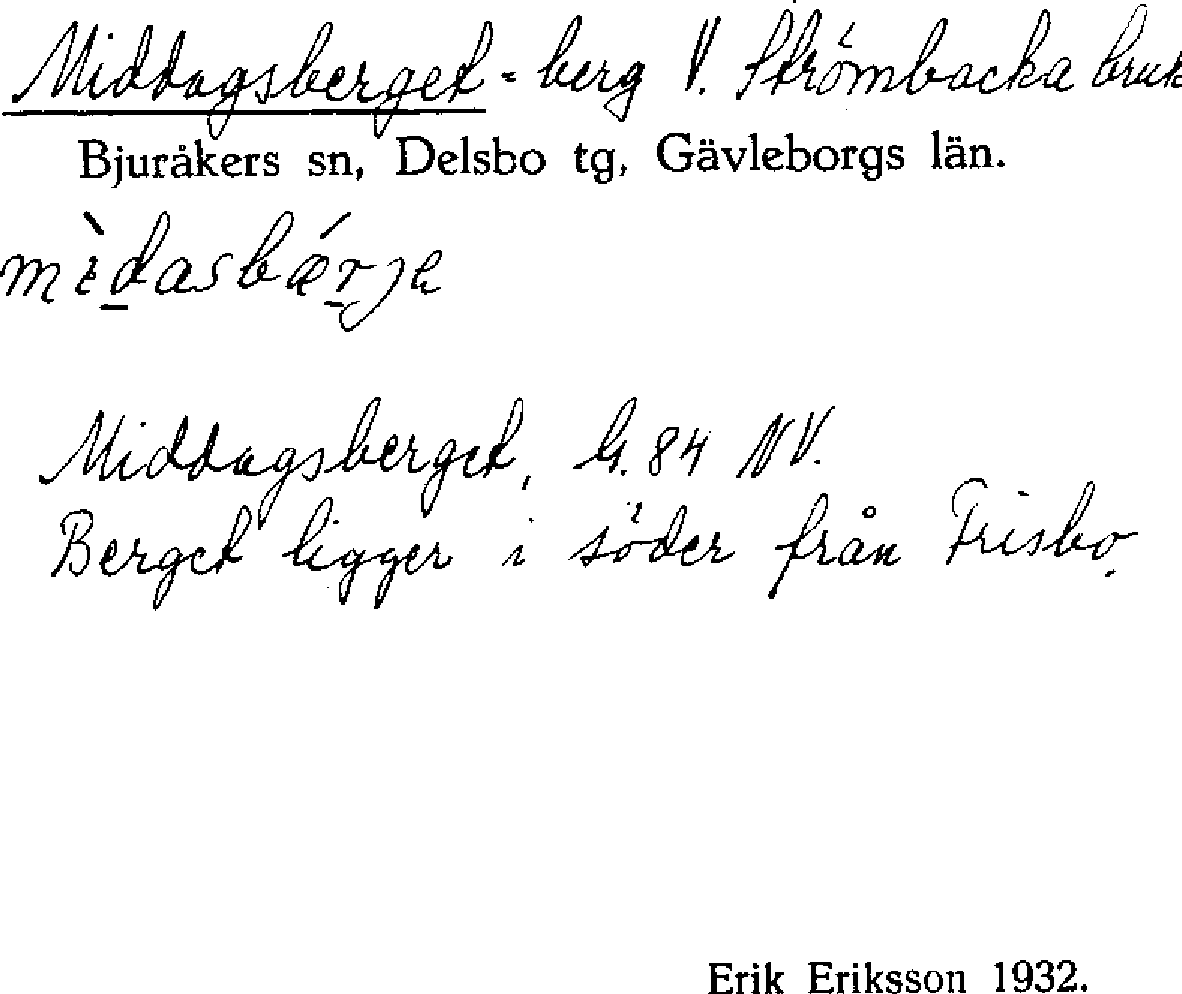 Middagsberget = berg V. Strömbacka bruk
Bjuråkers sn, Delsbo tg, Gävleborgs län.
mìdasbǽrje
Middagsberget, G. 84 NV.
Berget ligger i söder från Frisbo.
Erik Eriksson 1932.